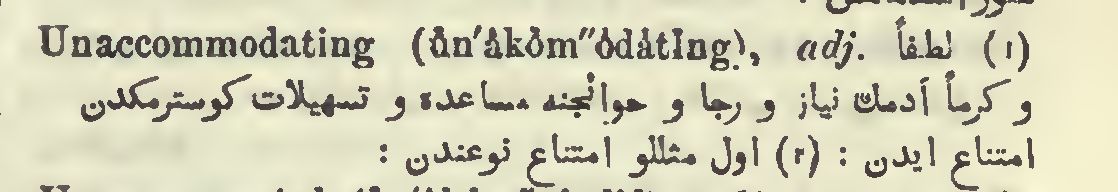 Unaccommodating (ŭn′ăkŏm″ŏdâtĭng), adj. (١) لطفاً
و كرماً آدمك نياز و رجا و حوائجنه مساعده و تسهيلات كوسترمكدن
امتناع ايدن : (٢) اول مثللو امتناع نوعندن :